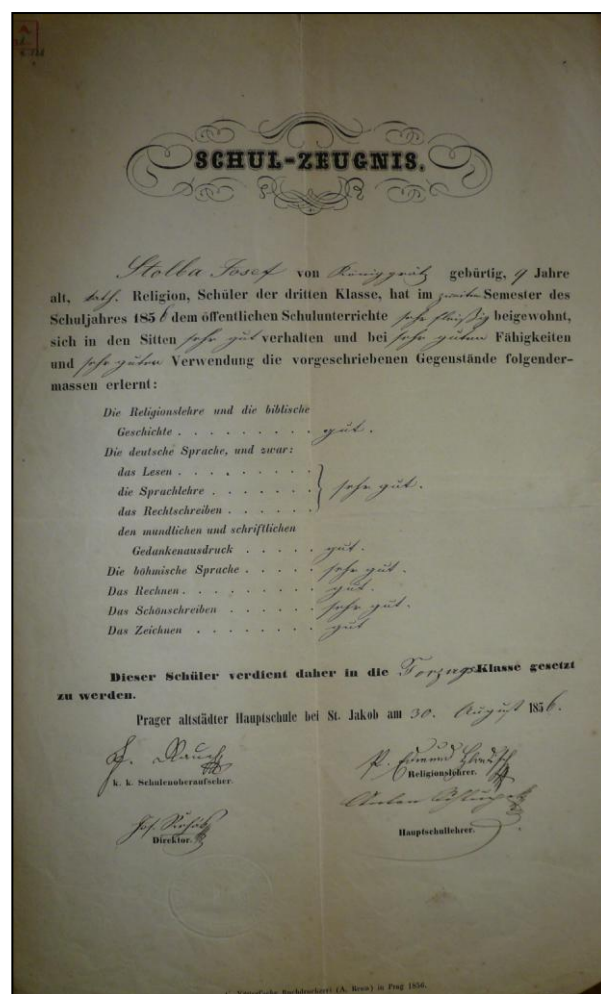 SCHUL-ZEUGNIS.
Stolba Josef von Königgrätz gebürtig, 9 Jahre
alt, kath. Religion, Schüler der dritten Klasse, hat im zweiten Semester des
Schuljahres 1856 dem öffentlichen Schulunterrichte sehr fleißig beigewohnt,
sich in den Sitten sehr gut verhalten und bei sehr guten Fähigkeiten
und sehr guter Verwendung die vorgeschriebenen Gegenstände folgender-
massen erlernt:
Die Religionslehre und die biblische
Geschichte . . . . . . . . . gut.
Die deutsche Sprache, und zwar:
das Lesen . . . . . . . .
die Sprachlehre . . . . . . . } sehr gut.
das Rechtschreiben . . . . . .
den mundlichen und schriftlichen
Gedankenausdruck . . . . . gut.
Die böhmische Sprache . . . . . sehr gut.
Das Rechnen . . . . . . . . . gut.
Das Schönschreiben . . . . . . sehr gut.
Das Zeichnen . . . . . . . . gut
Dieser Schüler verdient daher in die Vorzugs Klasse gesetzt
zu werden.
Prager altstädter Hauptschule bei St. Jakob am 30. August 1856.
k. k. Schulenoberaufseher.
P. Edmund
Religionslehrer.
Anton
Jos.
Direktor.
Hauptschullehrer.
Buchdruckerei (A. Renn) in Prag 1856.